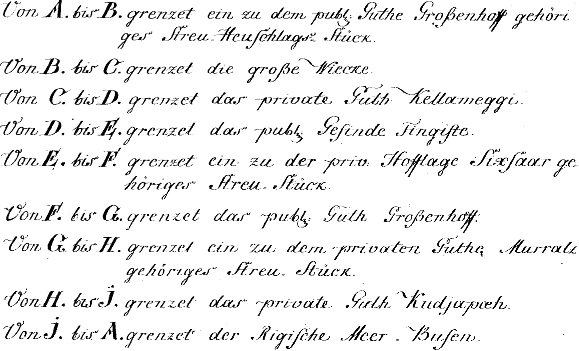 Von A. bis B. grenzet ein zu dem publ: Guthe Großenhoff gehöri
ges Streu-Heuschlags-Stück.
Von B. bis C. grenzet die große Wiecke.
Von C. bis D. grenzet das private Guth Kellameggi.
Von D. bis E. grenzet das publ: Gesinde Tingiste.
Von E. bis F. grenzet ein zu der priv. Hofflage Sixsaar ge
höriges Streu-Stück.
Von F. bis G. grenzet das publ: Guth Großenhoff.
Von G. bis H. grenzet ein zu dem privaten Guthe Murratz
gehöriges Streu-Stück.
Von H. bis J. grenzet das private Guth Kudjapæh.
Von J. bis A. grenzet der Rigische Meer-Busen.